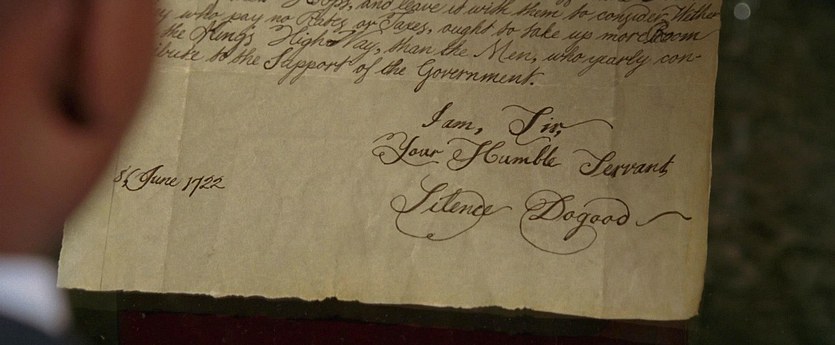 Hops, and leave it with them to consider, Whether
who pay no Rates or Taxes, ought to take up more Room
the King's High-Way, than the Men, who yearly con-
bute to the Support of the Government.
I am, Sir,
Your Humble Servant,
Silence Dogood
June 1722